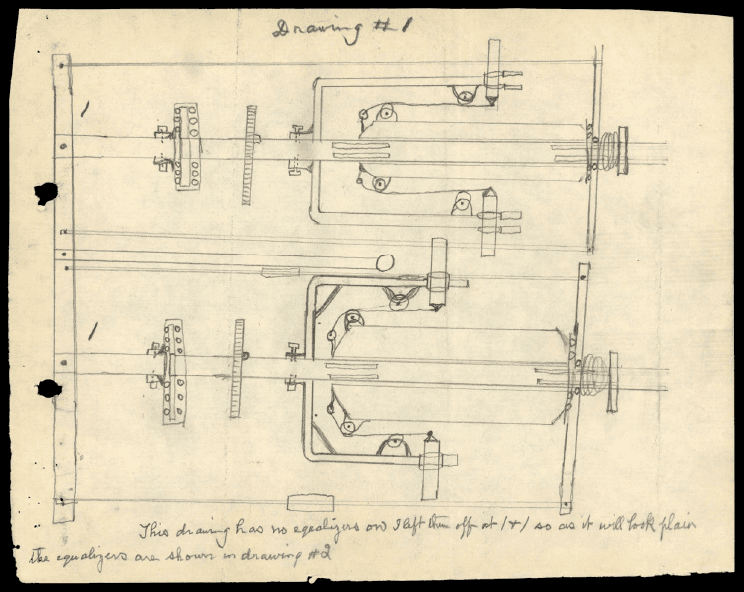 Drawing #1
This drawing has no equalizers on I left them off at (x) so as it will look plain
the equalizers are shown in drawing #2